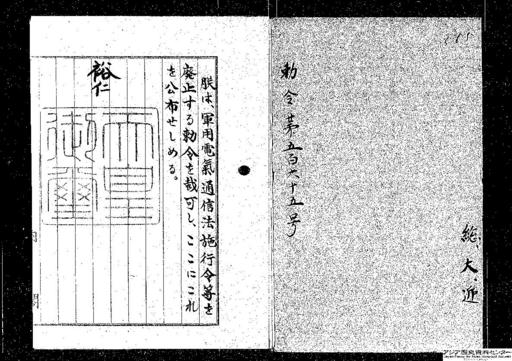 勅令第五百六十五号
総、大、近
朕は、軍用電氣通信法施行令等を
廃止する勅令を裁可し、ここにこれ
を公布せしめる。
裕仁
天皇
御璽
アジア歴史資料センター